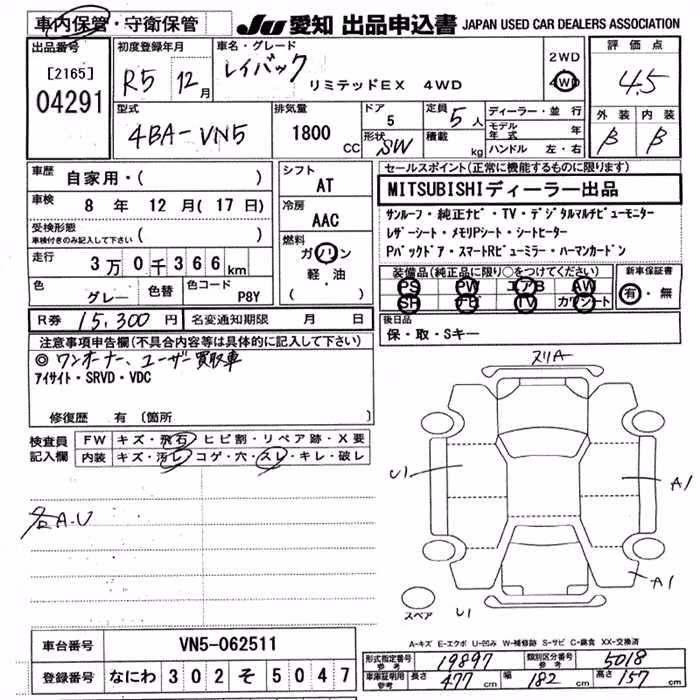 車内保管・守衛保管
JU 愛知 出品申込書 JAPAN USED CAR DEALERS ASSOCIATION
出品番号 初度登録年月 車名・グレード 2WD 評価点
[2165] R5 12月 レイバック
04291 リミテッドEX 4WD 4WD 4.5
型式 排気量 ドア 定員 ディーラー・並行 外装 内装
4BA-VN5 1800 CC 5 5人 モデル年式 年 B B
形状 SW 積載 kg ハンドル 左・右
車歴 自家用・( ) シフト AT セールスポイント(正常に機能するものに限ります)
MITSUBISHIディーラー出品
車検 8年 12月(17日) 冷房 AAC
サンルーフ・純正ナビ・TV・デジタルマルチビューモニター
受検形態 車検付きのみ記入して下さい ( )
レザーシート・メモリPシート・シートヒーター
走行 3万0千366km 燃料 ガソリン 軽・油 ( )
Pバックドア・スマートRビューミラー・ハーマンカードン
装備品(純正品に限り○をつけてください) 新車保証書
色 グレー 色替 色コード P8Y
PS PW エアB AW 有・無
SH ナビ TV カワシート
R券 15,300円 名変通知期限 月 日
後日品
保・取・Sキー
注意事項申告欄(不具合内容等は具体的に記入して下さい)
◎ワンオーナー、ユーザー買取車
アイサイト・SRVD・VDC
修復歴 有(箇所 )
検査員記入欄 FW キズ・飛石・ヒビ割・リペア跡・X要
内装 キズ・汚レ・コゲ・穴・スレ・キレ・破レ
各A.U
スリA
U1
A1
A1
U1
スペア
A-キズ E-エクボ U-凹み W-補修跡 S-サビ C-腐食 XX-交換済
車台番号 VN5-062511
登録番号 なにわ 302 そ 5047
形式指定番号 参考 19897 類別区分番号 参考 5018
車庫証明用 参考 長さ 477cm 幅 182cm 高さ 157cm